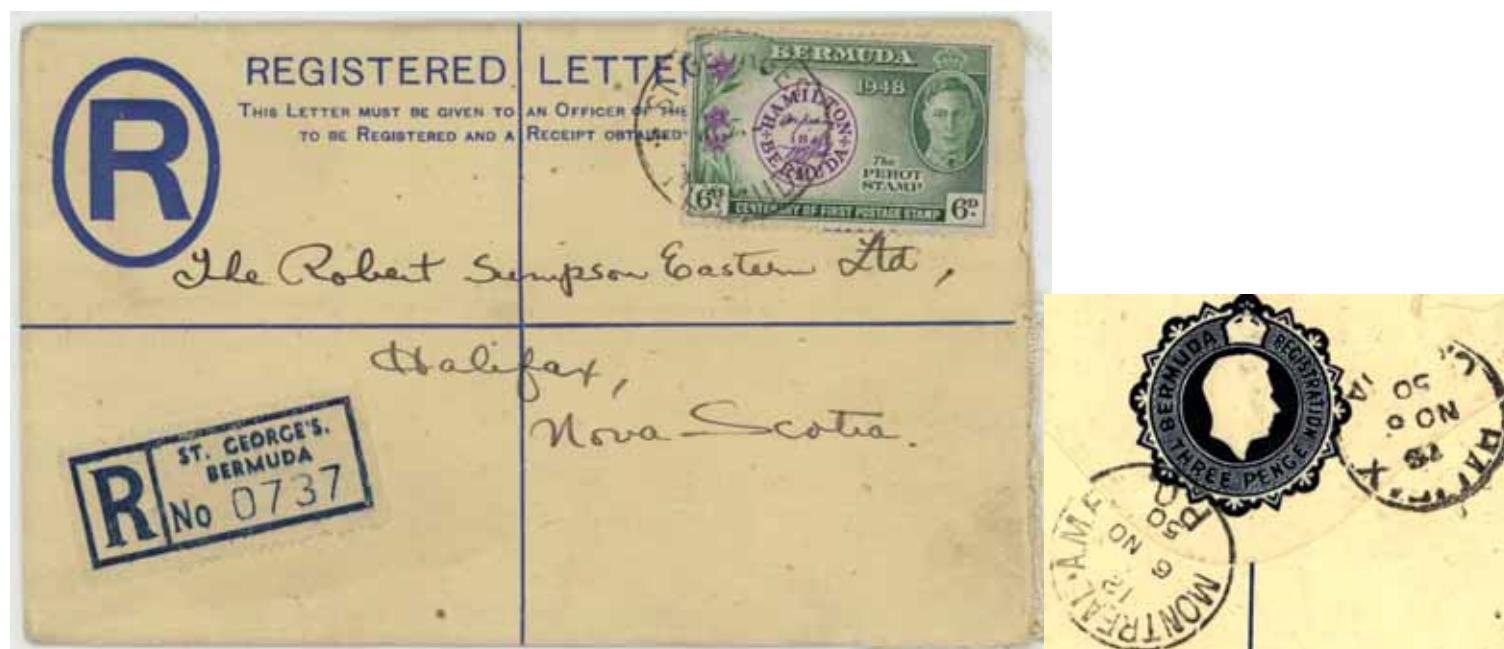 R
REGISTERED LETTE
THIS LETTER MUST BE GIVEN TO AN OFFICER OF THE
TO BE REGISTERED AND A RECEIPT OBTAINED
BERMUDA
1948
HAMILTON
BERMUDA
The
PEROT
STAMP
6D. 6D.
CENTENARY OF FIRST POSTAGE STAMP
The Robert Simpson Eastern Ltd,
Halifax,
Nova Scotia.
R
ST. GEORGE'S.
BERMUDA
No 0737
BERMUDA REGISTRATION
THREE PENCE
NO 6
50
MONTREAL A.M.F.
6
NO
50